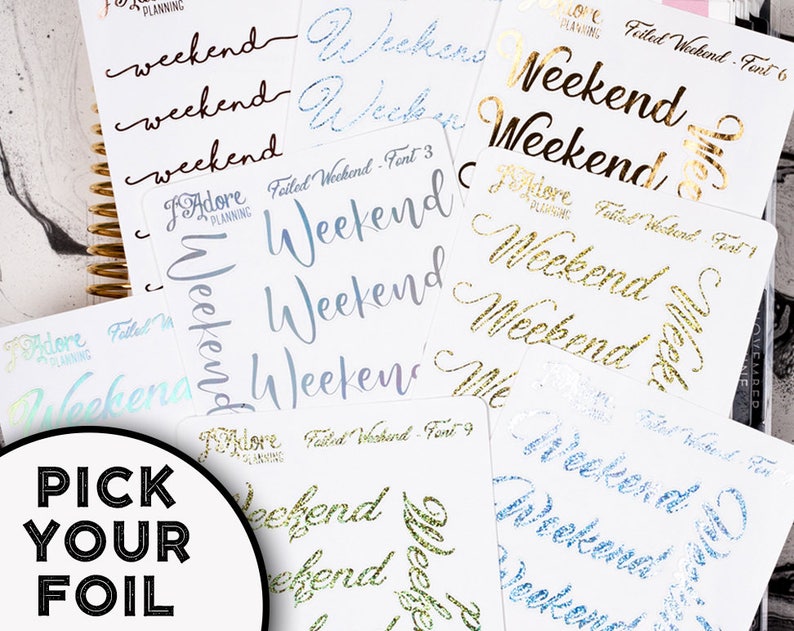 J'Adore
PLANNING
weekend
weekend
weekend
Weekend
Weekend
Foiled Weekend - Font 6
PLANNING
Weekend
Weekend
J'Adore
PLANNING
Foiled Weekend - Font 3
Weekend
Weekend
Weekend
Weekend
J'Adore
PLANNING
Foiled Weekend - Font 1
Weekend
Weekend
J'Adore
PLANNING
Foiled Weekend
Weekend
J'Adore
PLANNING
Foiled Weekend - Font 9
Weekend
Weekend
Weekend
Foiled Weekend - Font
Weekend
Weekend
Weekend
Weekend
PICK
YOUR
FOIL